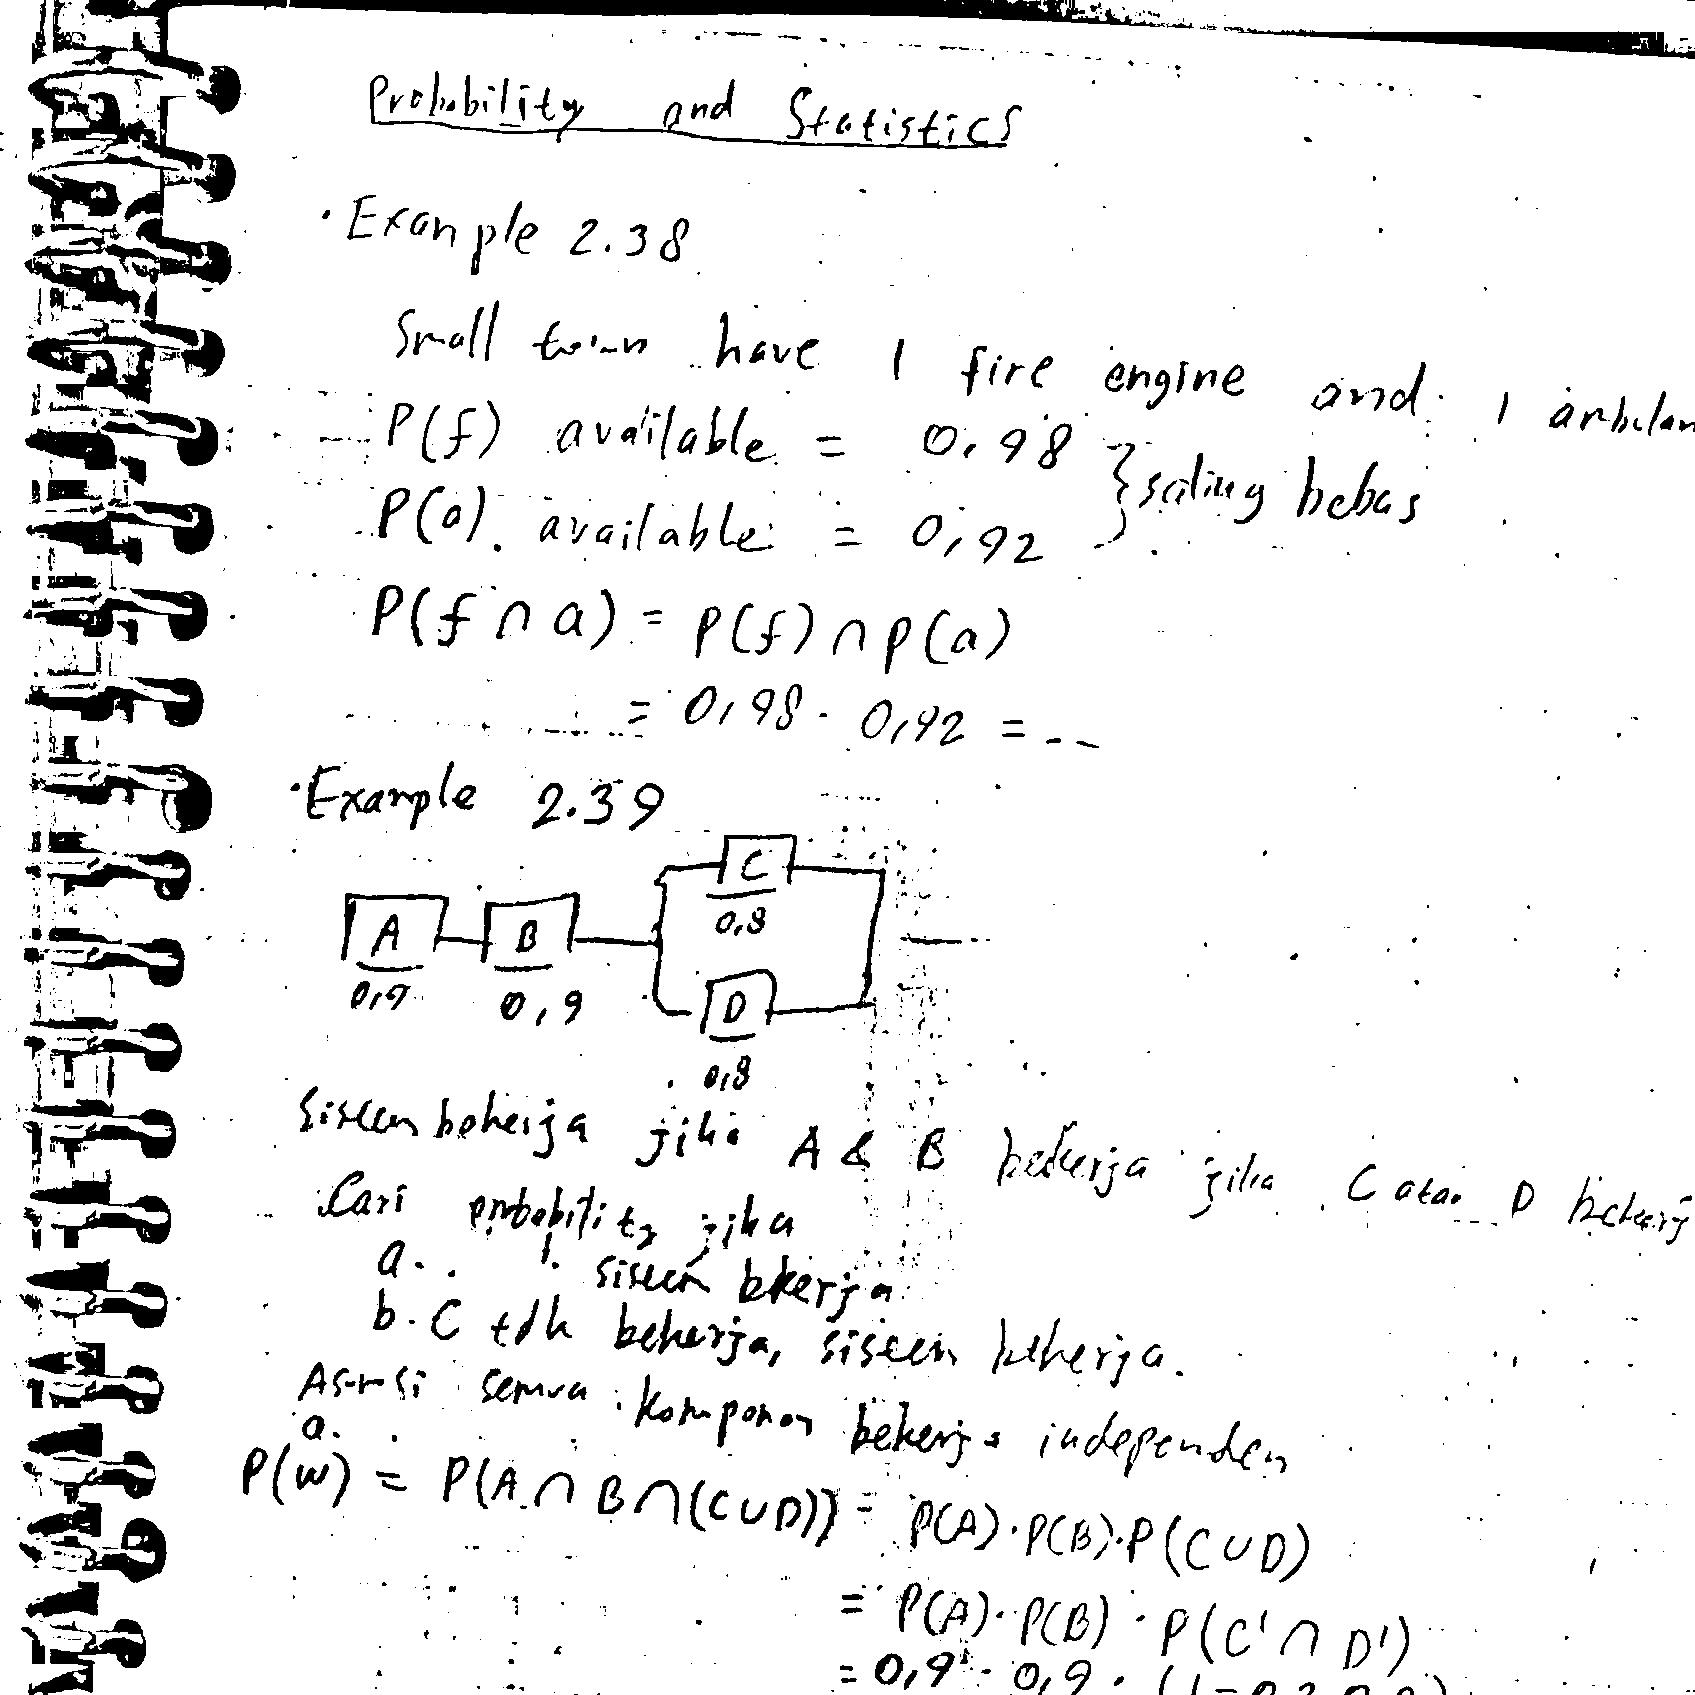 Probability and Statistics
· Example 2.38
Small town have 1 fire engine and 1 ambulan
P(f) available = 0,98
} saling bebas
P(a). available = 0,92
P(f ∩ a) = P(f) ∩ P(a)
= 0,98 . 0,92 = ...
· Example 2.39
C
0,8
A B
0,9 0,9
D
0,8
Sistem bekerja jika A & B bekerja jika C atau D bekerj
Cari probability jika
a. sistem bekerja
b. C tdk bekerja, sistem bekerja.
Asumsi semua komponen bekerja independen
a.
P(w) = P(A ∩ B ∩ (C ∪ D)) = P(A) . P(B) . P(C ∪ D)
= P(A) . P(B) . P(C' ∩ D')
= 0,9 . 0,9 . (1 -